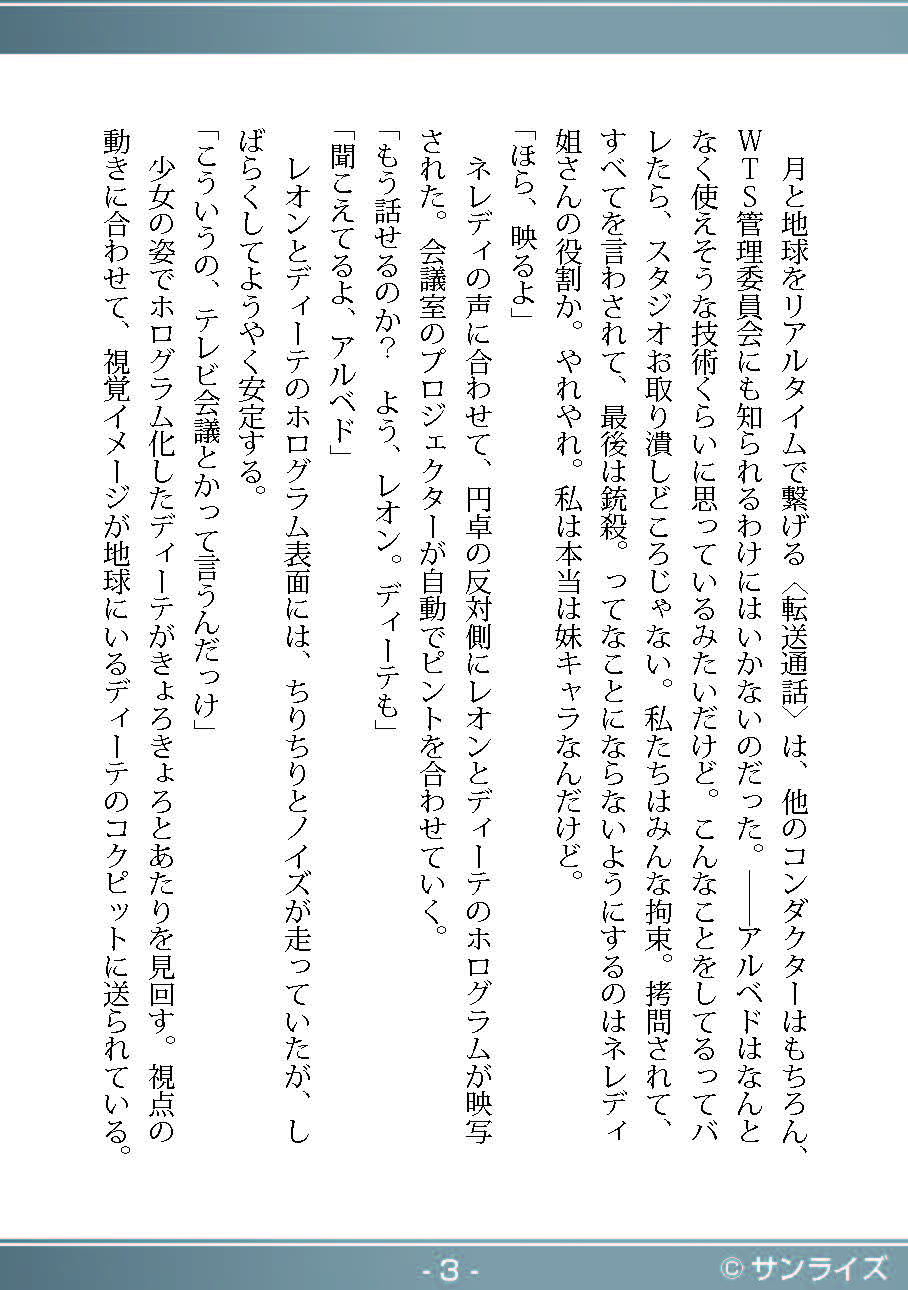 月と地球をリアルタイムで繋げる〈転送通話〉は、他のコンダクターはもちろん、
ＷＴＳ管理委員会にも知られるわけにはいかないのだった。――アルベドはなんと
なく使えそうな技術くらいに思っているみたいだけど。こんなことをしてるってバ
レたら、スタジオお取り潰しどころじゃない。私たちはみんな拘束。拷問されて、
すべてを言わされて、最後は銃殺。ってなことにならないようにするのはネレディ
姐さんの役割か。やれやれ。私は本当は妹キャラなんだけど。
「ほら、映るよ」
　ネレディの声に合わせて、円卓の反対側にレオンとディーテのホログラムが映写
された。会議室のプロジェクターが自動でピントを合わせていく。
「もう話せるのか？　よう、レオン。ディーテも」
「聞こえてるよ、アルベド」
　レオンとディーテのホログラム表面には、ちりちりとノイズが走っていたが、し
ばらくしてようやく安定する。
「こういうの、テレビ会議とかって言うんだっけ」
　少女の姿でホログラム化したディーテがきょろきょろとあたりを見回す。視点の
動きに合わせて、視覚イメージが地球にいるディーテのコクピットに送られている。
- 3 -
© サンライズ